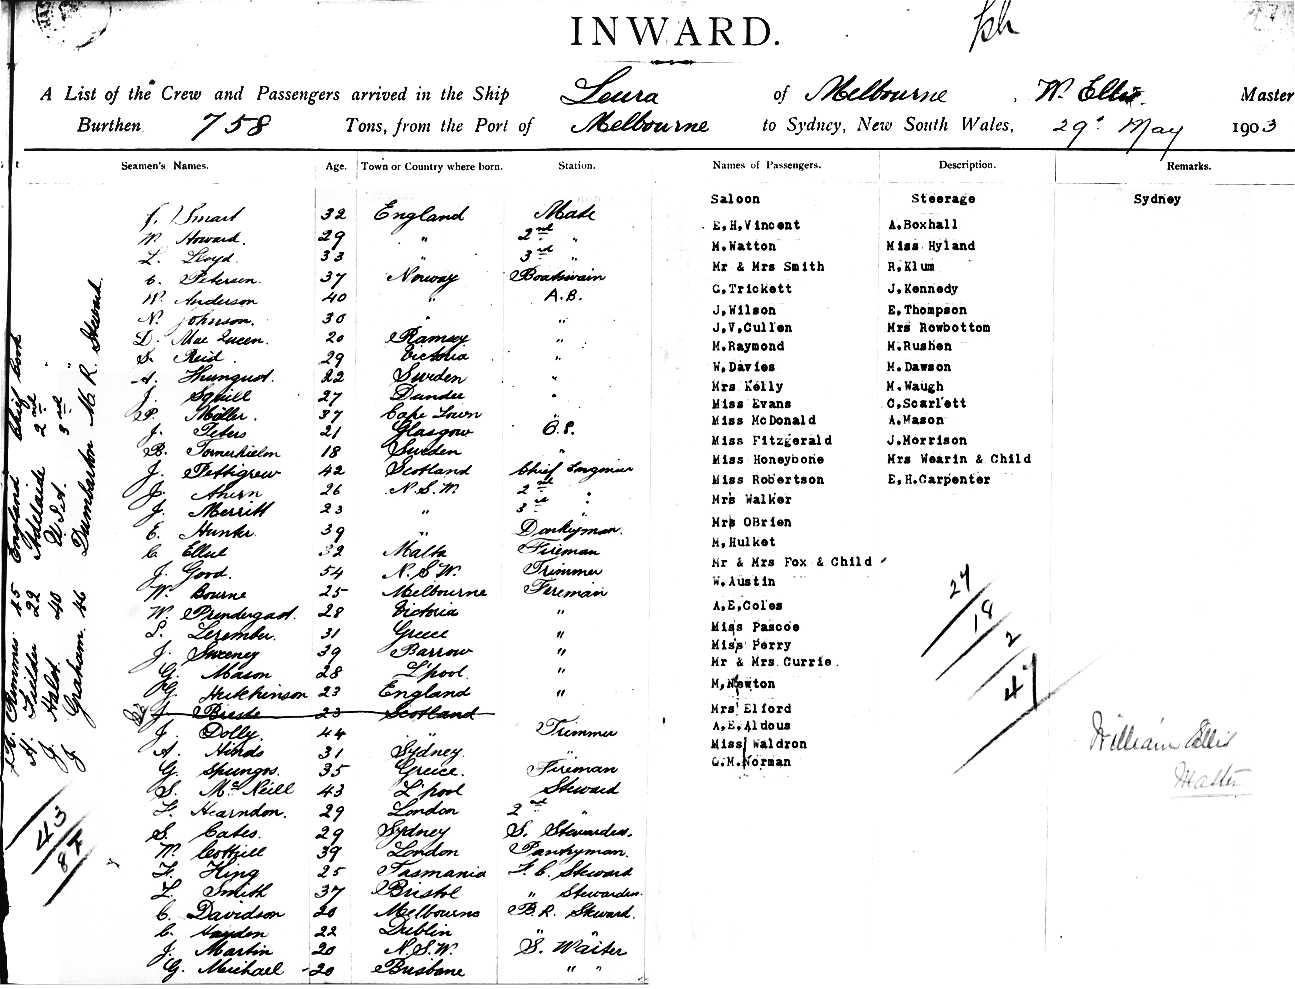 INWARD.
A List of the Crew and Passengers arrived in the Ship Leura of Melbourne, W. Ellis. Master
Burthen 758 Tons, from the Port of Melbourne to Sydney, New South Wales, 29th May 1903
Seamen's Names. Age. Town or Country where born. Station. Names of Passengers. Description. Remarks.
Saloon Steerage Sydney
Smart 32 England Mate
W. Howard. 29 " 2nd "
L. Lloyd. 33 " 3rd "
C. Petersen. 37 Norway Boatswain
W. Anderson 40 " A.B.
N. Johnson. 30 " "
D. Mac Queen. 20 Ramsay "
S. Reid. 29 Victoria "
A. 22 Sweden "
J. Squill 27 Dundee "
P. Möller. 37 Cape Town "
J. Peters 21 Glasgow O.S.
B. 18 Sweden "
J. Pettigrew 42 Scotland Chief Engineer
J. Ahern 26 N.S.W. 2nd "
J. Merritt 23 " 3rd "
E. Hunter 39 " Donkeyman.
C. Ellul 32 Malta Fireman
J. Good. 54 N.S.W. Trimmer
W. Bourne 25 Melbourne Fireman
W. Prendergast. 28 Victoria "
S. 31 Greece "
J. Sweeney 39 Barrow "
G. Mason 28 L'pool "
G. Hutchinson 23 England "
J. 23 Scotland
J. Dolly. 44 " Trimmer
A. Hinds 31 Sydney "
G. 35 Greece. Fireman
S. McNeill 43 L'pool Steward
F. Hearndon. 29 London 2nd "
S. Cates. 29 Sydney S. Stewardess.
W. 39 London Pantryman.
F. King 25 Tasmania F.C. Steward
L. Smith 37 Bristol " Stewardess
C. Davidson 20 Melbourne B.R. Steward.
C. Hayden 22 Dublin " "
J. Martin 20 N.S.W. S. Waiter
G. Michael 20 Brisbane " "
E.H.Vincent A.Boxhall
M.Watton Miss Hyland
Mr & Mrs Smith R.Klum
G.Trickett J.Kennedy
J.Wilson E.Thompson
J.V.Cullen Mrs Rowbottom
M.Raymond M.Rushen
W.Davies M.Dawson
Mrs Kelly M.Waugh
Miss Evans C.Scarlett
Miss McDonald A.Mason
Miss Fitzgerald J.Morrison
Miss Honeybone Mrs Wearin & Child
Miss Robertson E.H.Carpenter
Mrs Walker
Mrs OBrien
M.Hulket
Mr & Mrs Fox & Child
W.Austin
A.E.Coles
Miss Pascoe
Miss Perry
Mr & Mrs Currie.
M.Newton
Mrs Elford
A.E.Aldous
Miss Waldron
G.M.Norman
27
18
2
47
William Ellis
Master
45 England Chief Cook
H. Fielder 22 Adelaide 2nd "
J. 40 U.S.A. 3rd "
J. Graham. 46 Dumbarton M.R. Steward.
43
87